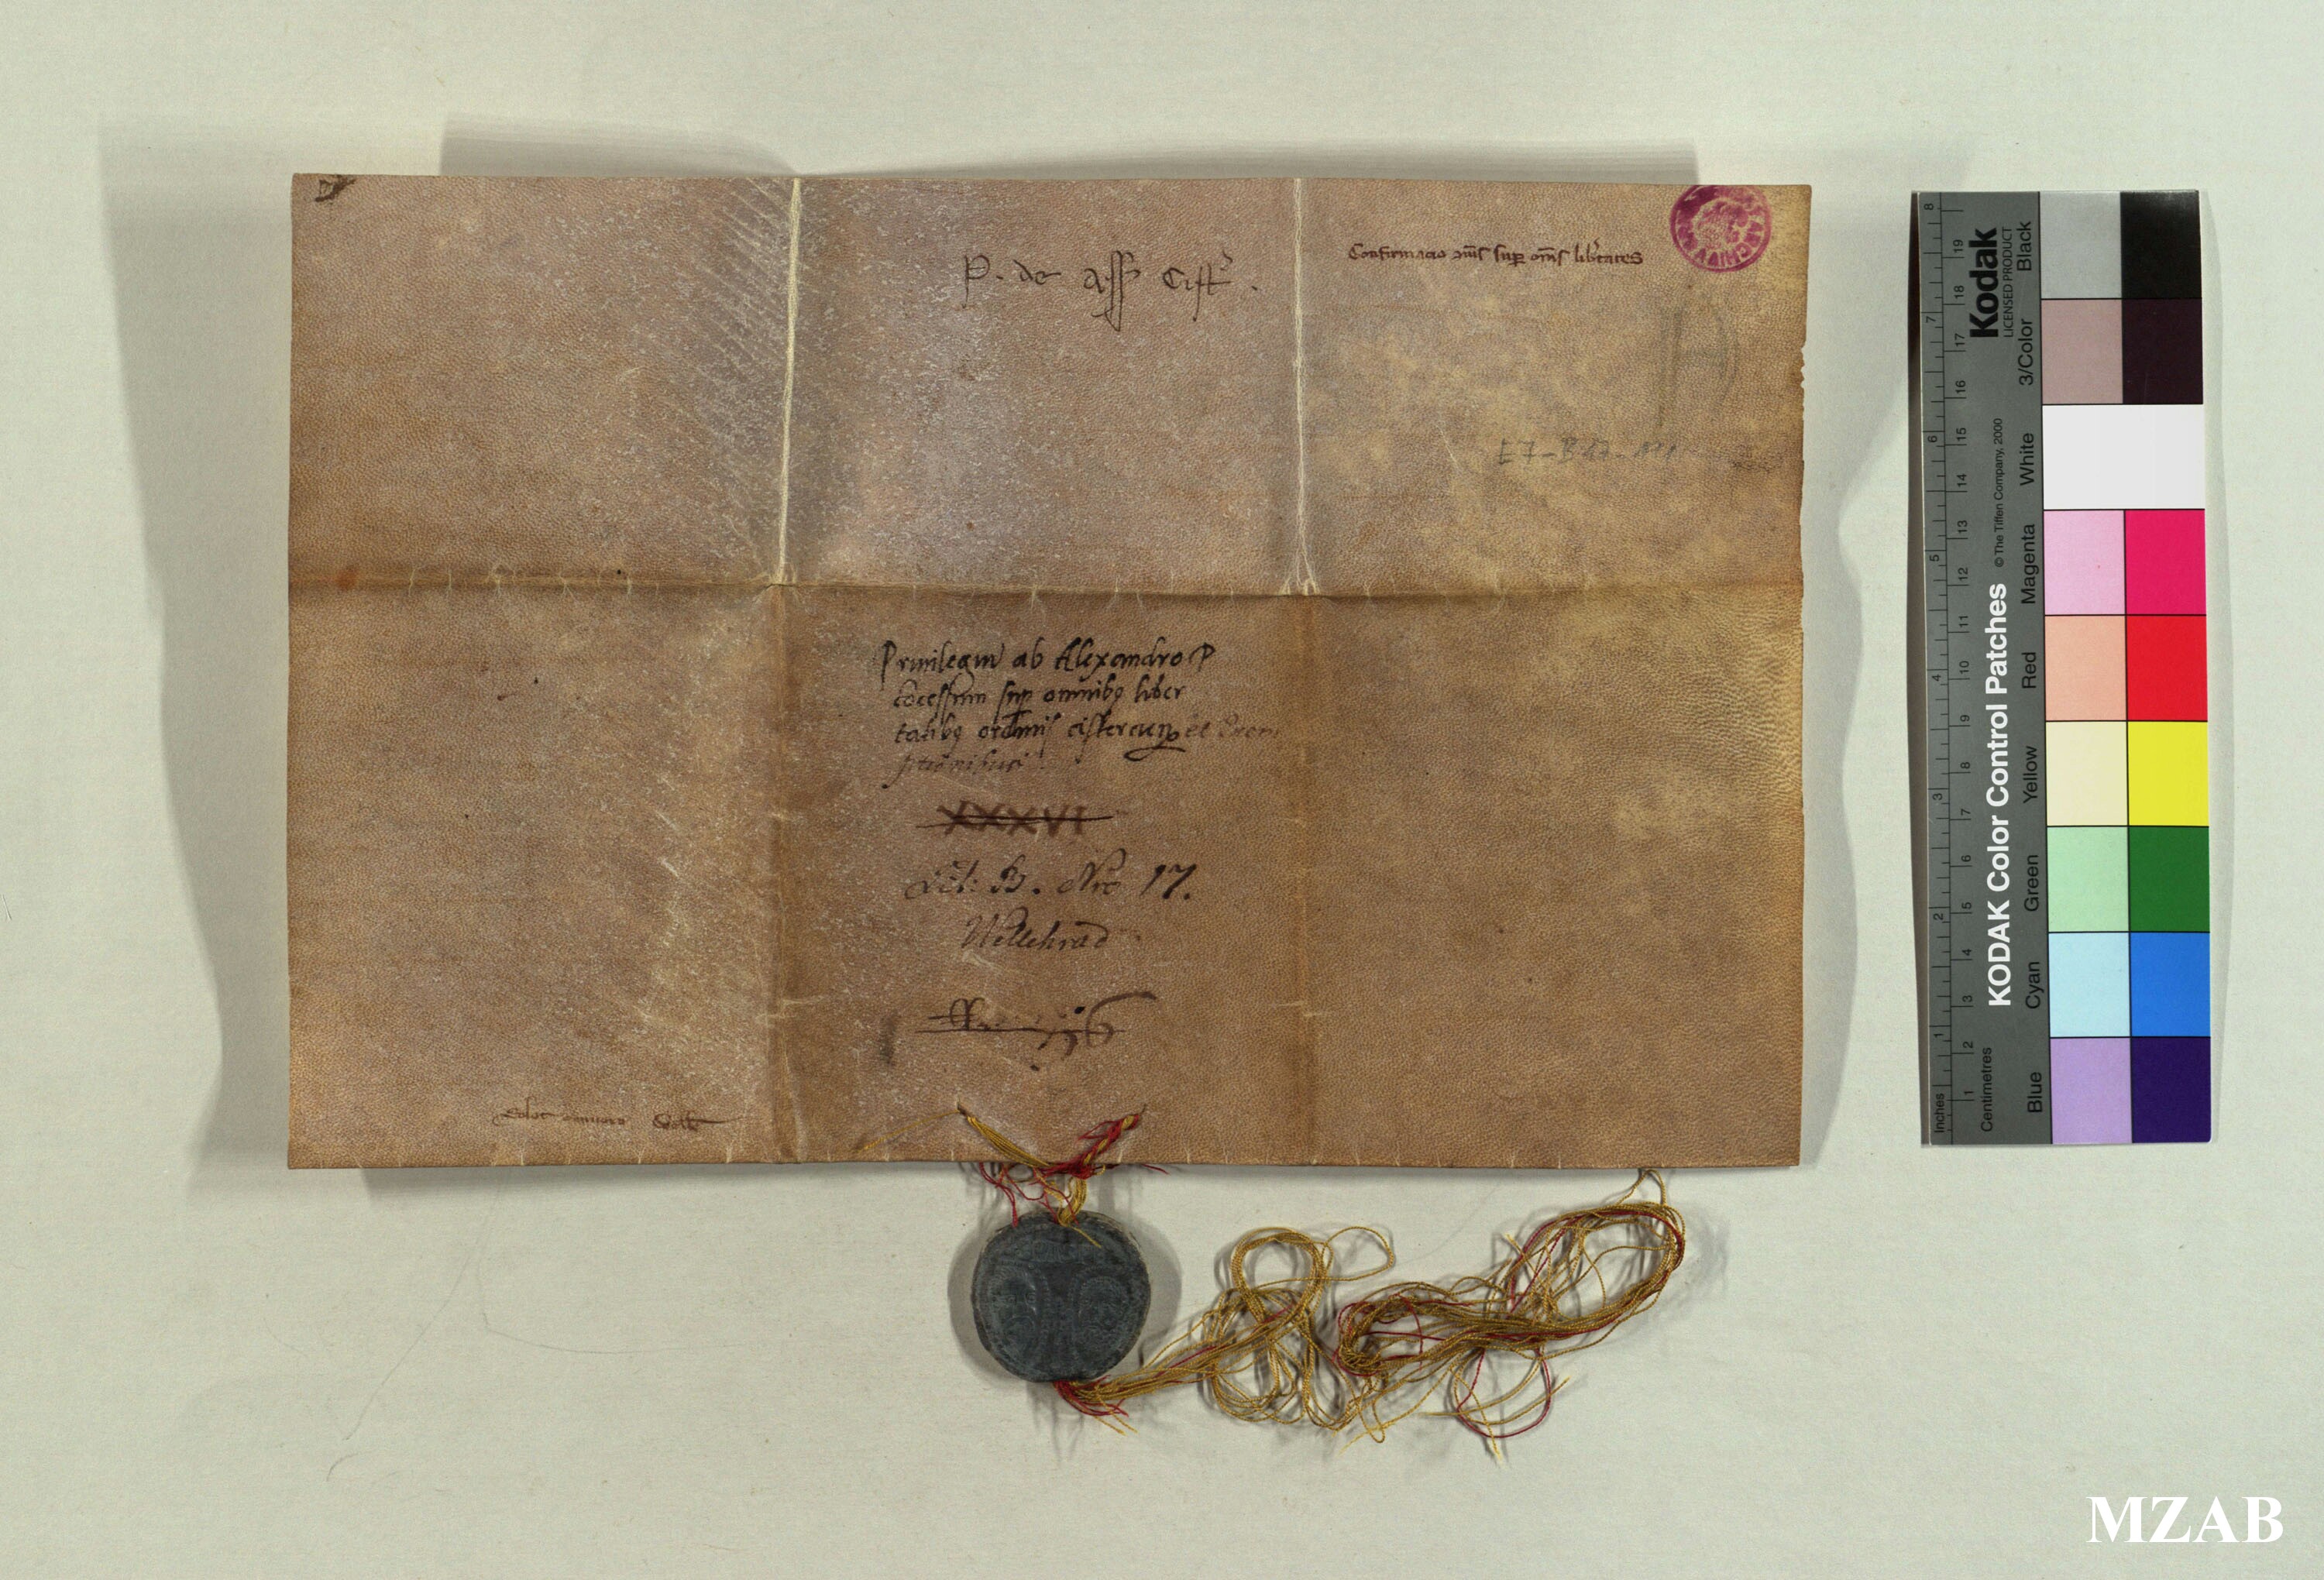 P. de ass Cist.
Confirmacio om̄s sup om̄s lib̄tates
ARCHIV
E7-B17-
Priuilegiū ab Alexandro P
cōcessum sup omnibꝫ liber
tatibꝫ ordinis cisterciensꝫ et Exem
ptionibus
XXXVI
Lit: B. Nro 17.
Wellehrad
36
MZAB
Kodak
LICENSED PRODUCT
KODAK Color Control Patches © The Tiffen Company, 2000
Blue Cyan Green Yellow Red Magenta White 3/Color Black
Inches 1 2 3 4 5 6 7 8
Centimetres 1 2 3 4 5 6 7 8 9 10 11 12 13 14 15 16 17 18 19